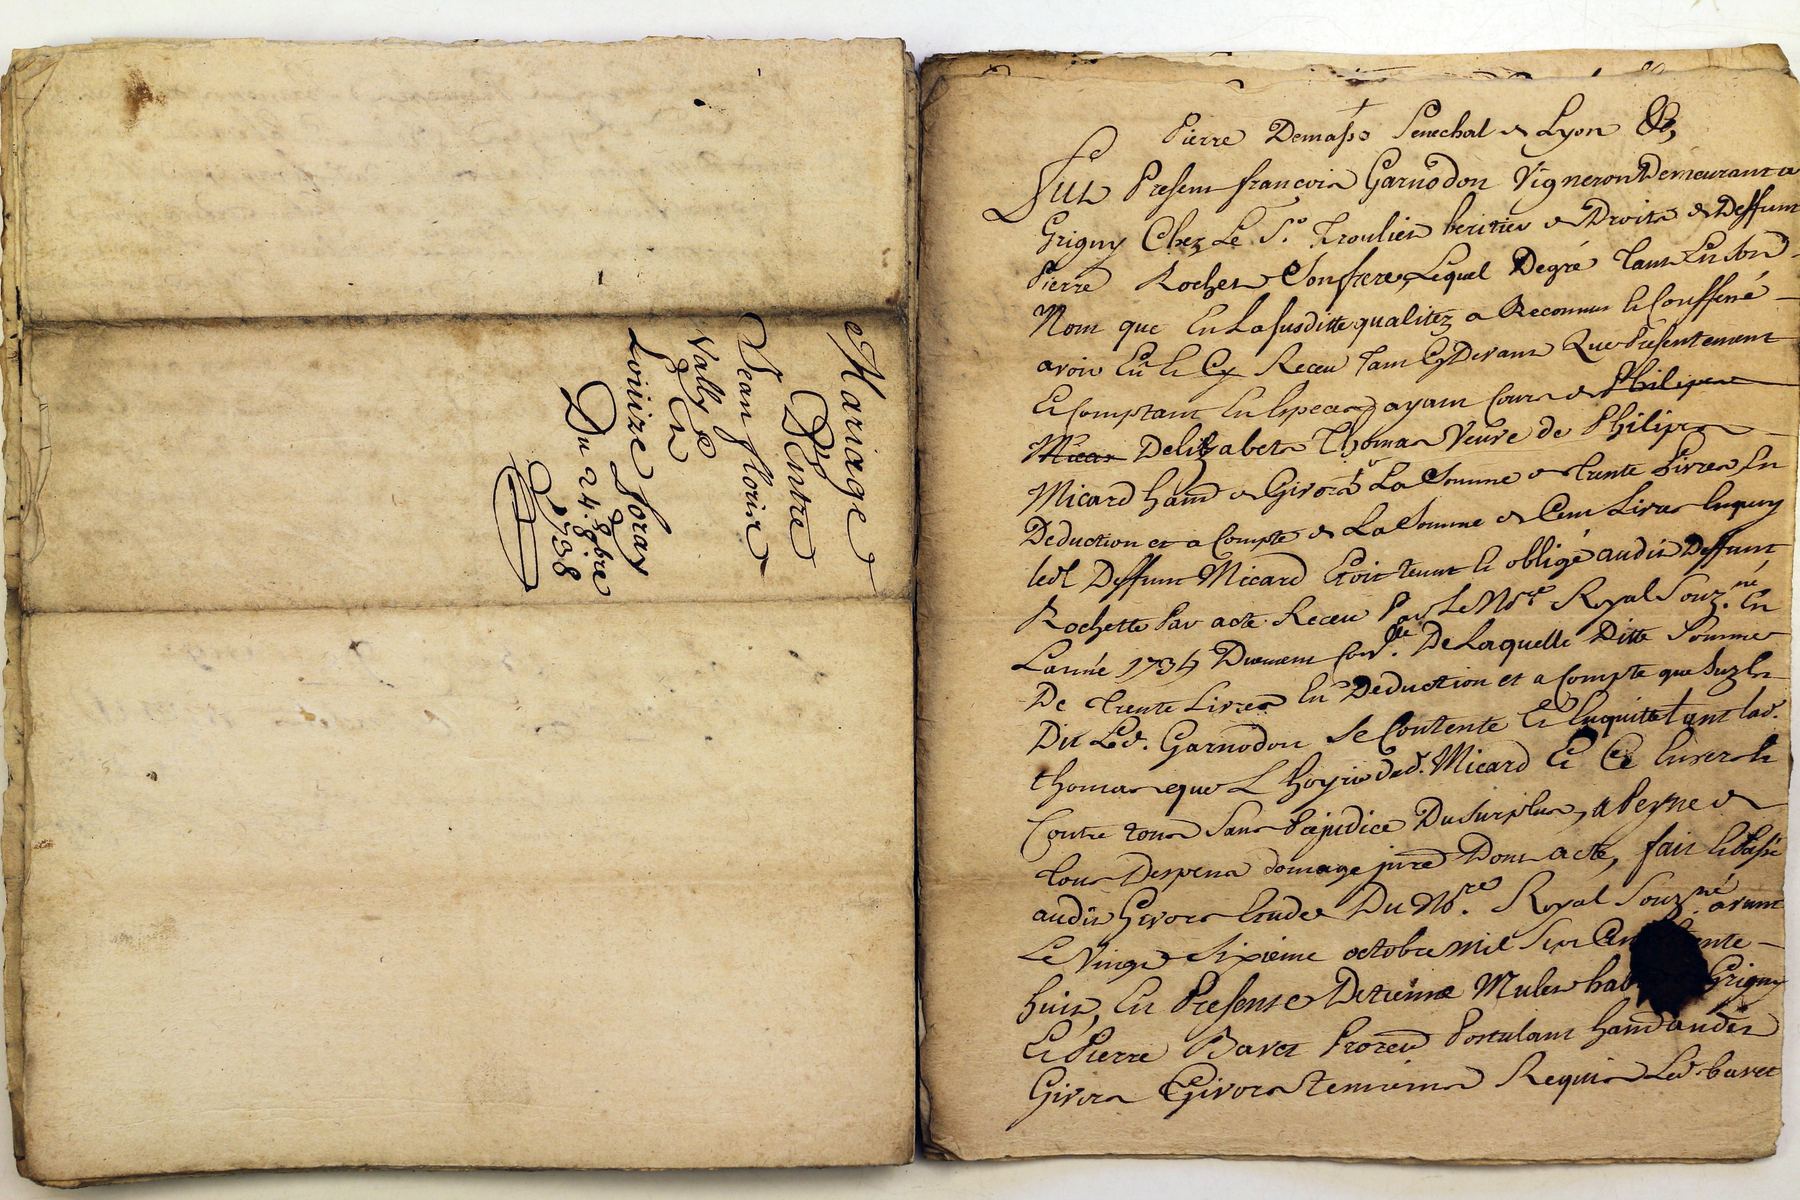 Mariage
D'Entre
Jean florire
Vally &
En
Loüize Foray
Du 24. 8bre
1738
Pierre Demasso Senechal de Lyon &c
Fut Present francois Garnodon Vigneron Demeurant a
Grigny Chez Le Sr. Troulier heritier de Droits de Deffunt
Pierre Rochet Son frere, Lequel Degré tant En Son
Nom que En La susditte qualitez a Reconnu Et Confessé
avoir Eu Et Receu tant Cy Devant Que Presentement
Et Comptant En Especes ayant Cours de Philipes
Micar Delizabets Thomas Veuve de Philipes
Micard hand de Givors La Somme de trente Livres En
Deduction et a Compte de La Somme de Cent Livres Enquoy
led. Deffunt Micard Etoit tenut Et obligé audit Deffunt
Rochette Par acte Receu Par Le Nore. Royal Souz.né En
Lannée 1734 Duement Con.lle De Laquelle Ditte Somme
De trente Livres En Deduction et a Compte que Suz Est
Dit Led. Garnodon Se Contente Et Enquitte tant lad.
thomas que L hoyrie dud. Micard Et Ce Envers Et
Contre tous Sans Prejudice Du Surplus, a Peyne de
tous Despens domage juré Dont acte, fait Et Passé
audit Givors Etude Du Nore. Royal Souz.né avant
Le Vingt Sixieme octobre Mil Sept Cent trente
huit, En Presence Detienne Mulet hab Grigny
Et Pierre Bavet Procud Postulant hand audit
Givors Givors temoins Requis Led. bavet